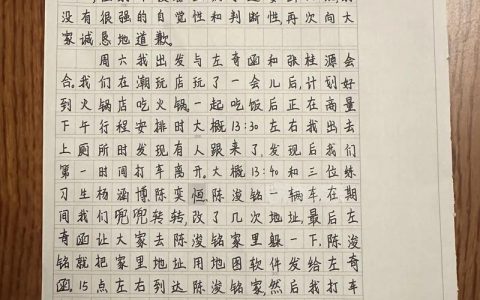 没有很强的自觉性和判断性,再次向大
家诚恳地道歉。
周六我出发与左奇函和张桂源会
合。我们在潮玩店玩了一会儿后,计划好
到火锅店吃火锅一起吃饭后正在商量
下午行程安排时大概13:30左右我出去
上厕所时发现有人跟来了,发现后我们
第一时间打车离开。大概13:40和三位练
习生杨涵博、陈奕恒、陈浚铭一辆车,在期
间我们兜兜转转,改了几次地址,最后左
奇函让大家去陈浚铭家里躲一下,陈浚
铭就把家里地址用地图软件发给左奇
函。15点左右到达陈浚铭家,然后我打车